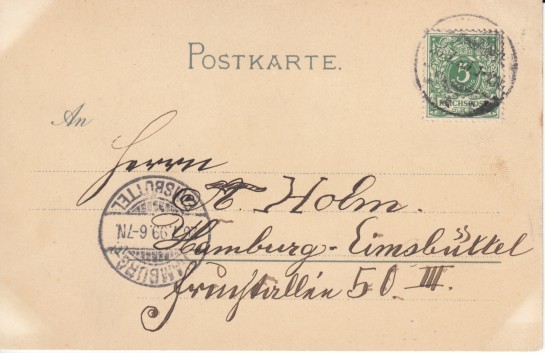 POSTKARTE.
5
REICHSPOST
An
Herrn
Holm.
Hamburg-Eimsbüttel
Fruchtallée 50 III.
EIMSBÜTTEL
99.6-7N
HAMBURG